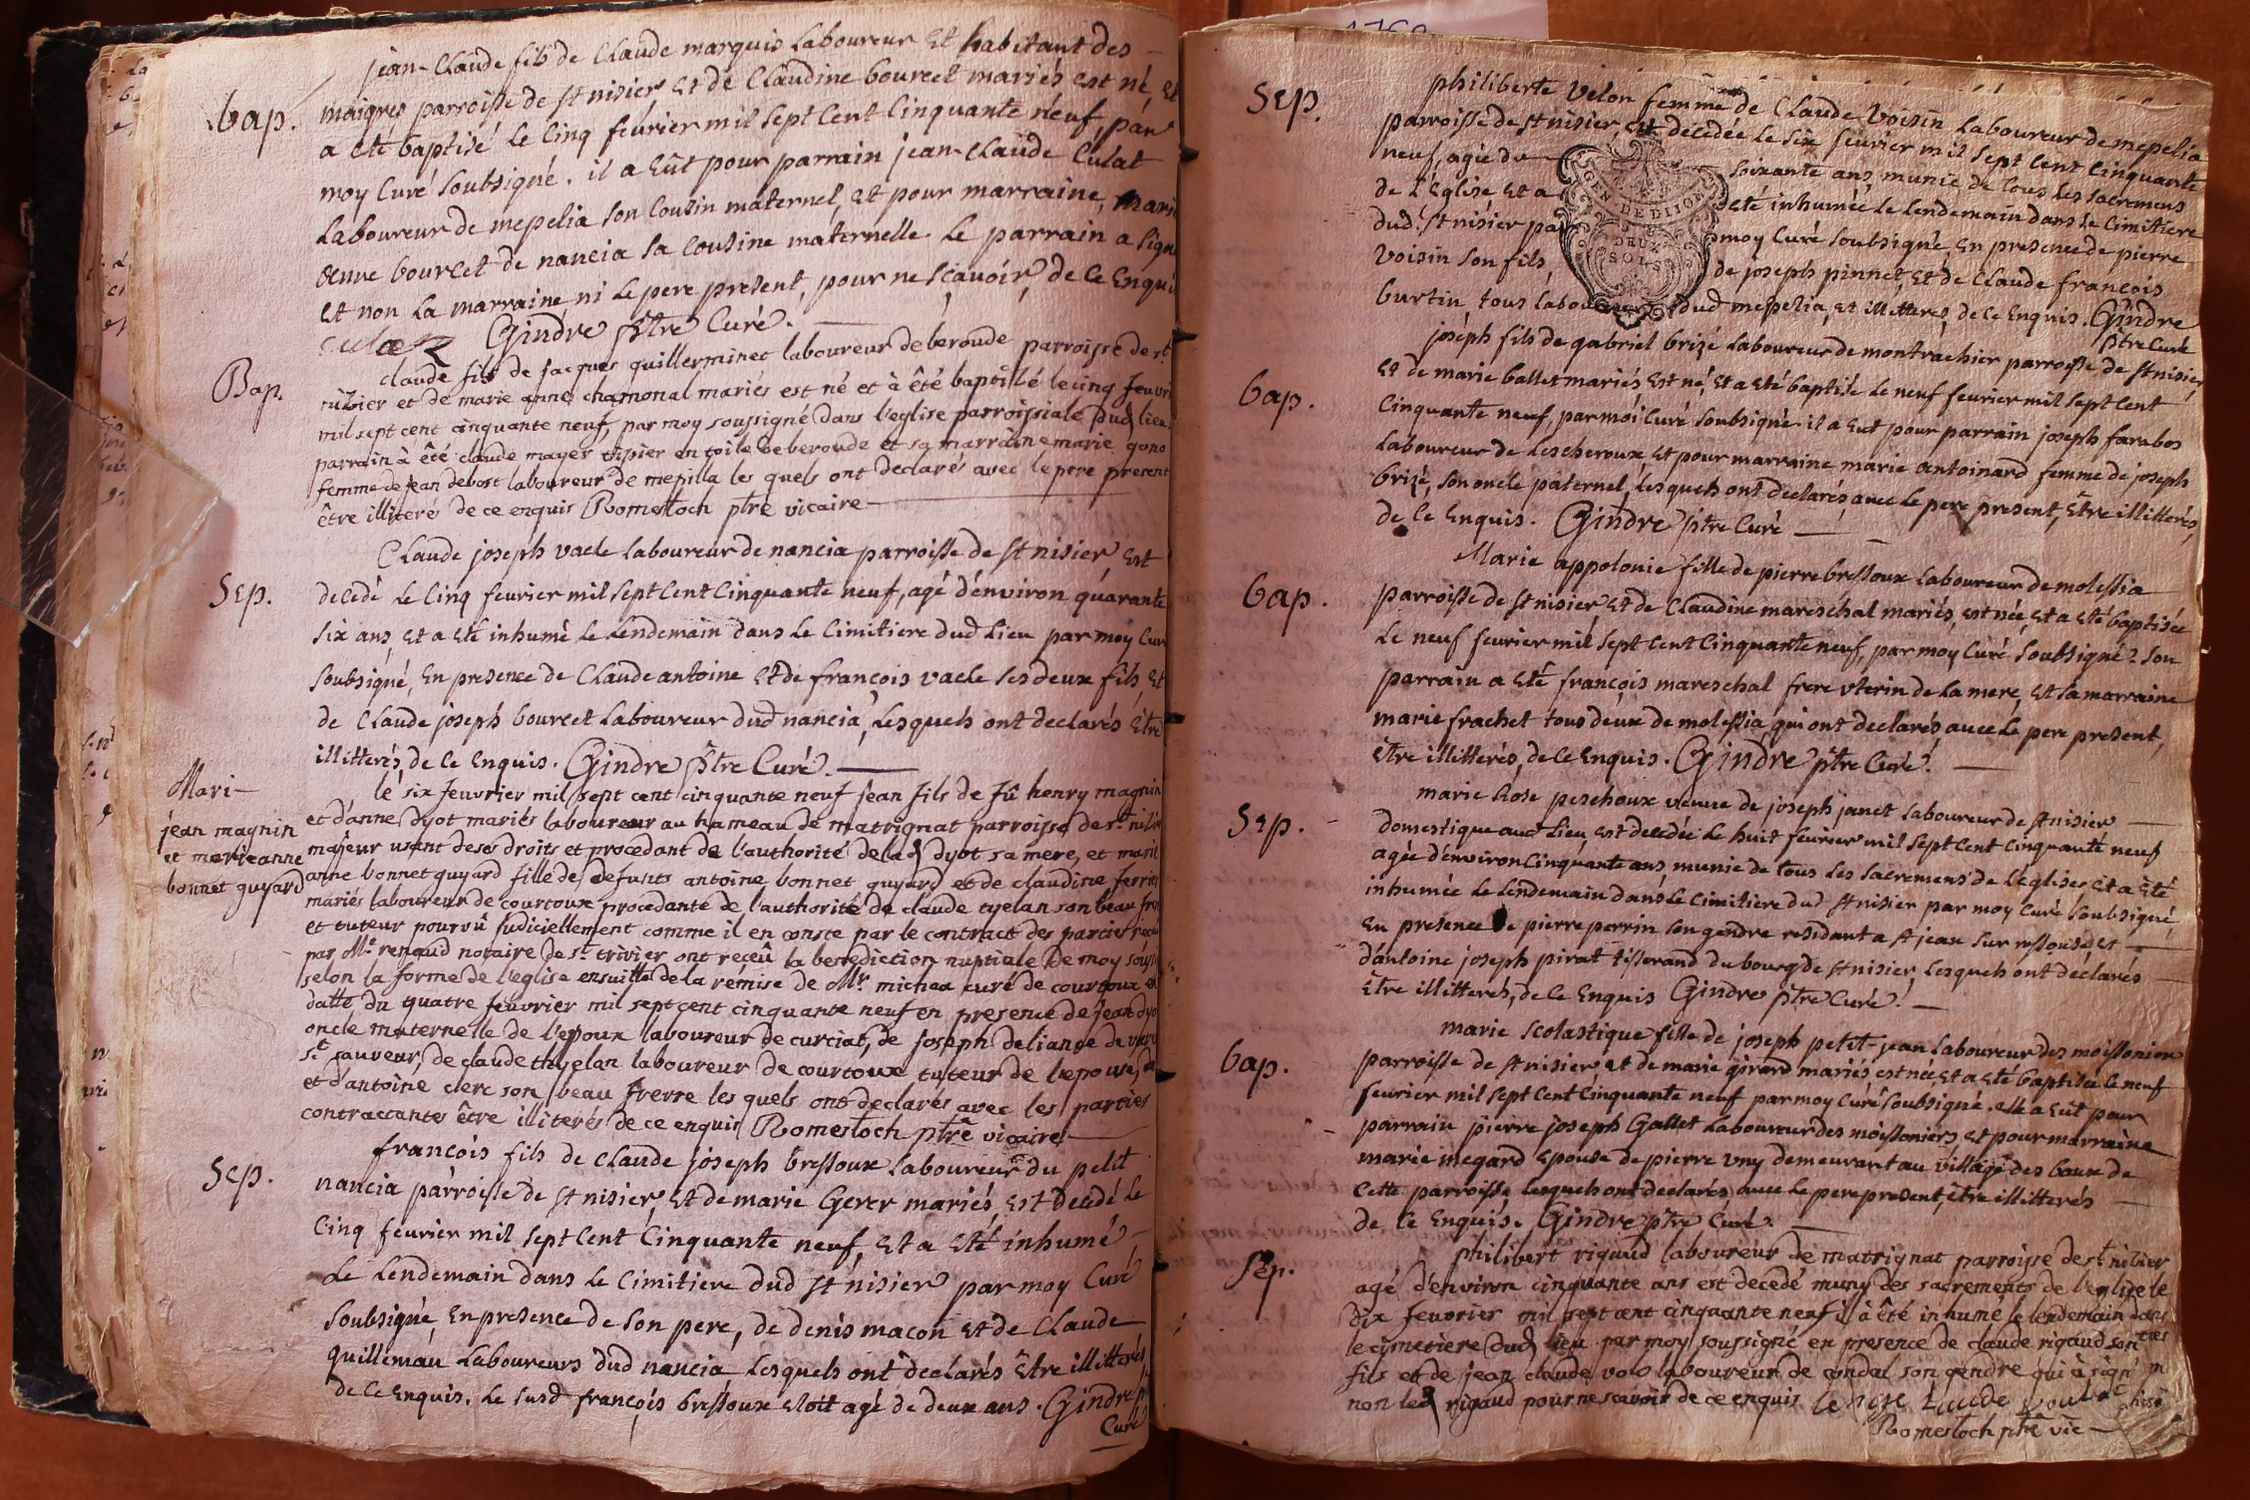 jean-Claude fils de Claude marquis Laboureur Et habitant des
bap.
maigres parroisse de st nisier Et de Claudine bourcet mariés est né, Et
a eté baptisé Le Cinq fevrier mil sept Cent Cinquante neuf, par
moy Curé soubsigné. il a Eût pour parrain jean-Claude Culat
Laboureur de mepelia son Cousin maternel, Et pour marraine,
bourcet de nancia sa Cousine maternelle. Le parrain a signé
Et non La marraine ni Le pere present, pour ne sçavoir, de Ce Enquis
Gindre Ptre Curé.
Bap.
claude fils de jacques guillerminet laboureur de beroude parroisse de st
nizier et de marie anne chamonal mariés est né et à êté baptisé le cinq fevrier
mil sept cent cinquante neuf, par moy soussigné dans l'eglise parroissiale dud lieu
parrain à êté claude mayer tipier en toile de beroude et sa marraine marie gono
femme de jean debost laboureur de mepilla les quels ont declarés avec le pere present
être illiterés de ce enquis Romestoch ptre vicaire
Claude joseph vacle Laboureur de nancia parroisse de st nisier, Est
Sep.
decedé Le Cinq fevrier mil sept Cent Cinquante neuf, agé d'environ quarante
six ans, et a eté inhumé Le Lendemain dans Le Cimitiere dud Lieu par moy Curé
soubsigné, En presence de Claude antoine Et de françois vacle ses deux fils, Et
de Claude joseph bourcet Laboureur dud nancia, Lesquels ont declarés Être
illitterés, de Ce Enquis. Gindre Ptre Curé.
Mari
jean magnin
et marieanne
bonnet guyard
le six fevrier mil sept cent cinquante neuf jean fils de fû henry magnin
et d'anne dyot mariés laboureur au hameau de matrignat parroisse de st
majeur usant deses droits et procedant de l'authorité de lad dyot sa mere, et marie
anne bonnet guyard fille de defunts antoine bonnet guyard et de claudine
mariés laboureur de courtoux procedante de l'authorité de claude tyelan son beau
et tuteur pourvû judiciellement comme il en conste par le contract des parties
par Me renaud notaire de st trivier ont reçeû la benediction nuptiale de moy
selon la forme de l'eglise ensuitte de la rémise de Mr michea curé de courtoux
datte du quatre fevrier mil sept cent cinquante neuf en presence de jean dyot
oncle maternelle de l'epoux laboureur de curciat, de joseph deliance de
st sauveur, de claude thyelan laboureur de courtoux tuteur de l'epouse,
et d'antoine clerc son beau frerre les quels ont declarés avec les parties
contractantes être illiterés de ce enquis Romestoch ptre vicaire
françois fils de Claude joseph bressoux Laboureur du petit
Sep.
nancia parroisse de st nisier, Et de marie Gerer mariés, Est decedé Le
Cinq fevrier mil sept Cent Cinquante neuf, Et a Eté inhumé
Le Lendemain dans Le Cimitiere dud st nisier par moy Curé
soubsigné, En presence de son pere, de denis macon Et de Claude
guillemau Laboureurs dud nancia Lesquels ont declarés Être illitterés,
de Ce Enquis. Le susd françois bressoux Etoit agé de deux ans. Gindre
Curé
Sep.
philiberte velon femme de Claude Voisin Laboureur de mepelia
parroisse de st nisier, Est decedée Le six fevrier mil sept Cent Cinquante
neuf, agée de soixante ans, munie de tous Les sacremens
de L'Eglise, Et a eté inhumée Le Lendemain dans Le Cimitiere
dud. st nisier par moy Curé soubsigné, En presence de pierre
Voisin son fils, de joseph pinnet, Et de Claude françois
burtin, tous dud mepelia, Et illitterés, de Ce Enquis. Gindre
Ptre Curé
GEN. DE DIJON
DEUX
SOLS
joseph fils de gabriel brizé Laboureur de montrachier parroisse de st nisier
bap.
Et de marie ballet mariés Est né, Et a Eté baptisé Le neuf fevrier mil sept Cent
Cinquante neuf, par moi Curé soubsigné. il a Eut pour parrain joseph farabos
Laboureur de Lescheroux Et pour marraine marie antoinard femme de joseph
brizé, son oncle paternel, Lesquels ont declarés, avec Le pere present, Être illitterés,
de Ce Enquis. Gindre Ptre Curé
Marie appolonie fille de pierre bressoux Laboureur de molessia
bap.
parroisse de st nisier, Et de Claudine mareschal mariés, est née, Et a Eté baptisée
Le neuf fevrier mil sept Cent Cinquante neuf, par moy Curé soubsigné. son
parrain a Eté françois mareschal frere uterin de La mere, Et La marraine
marie frachet tous deux de molessia, qui ont declarés, avec Le pere present,
Être illitterés, de Ce Enquis. Gindre Ptre Curé.
marie Rose peschoux veuve de joseph janet Laboureur de st nisier
Sep.
domestique aud Lieu, est decedée Le huit fevrier mil sept Cent Cinquante neuf
agée d'environ Cinquante ans, munie de tous Les sacremens de L'eglise, Et a Eté
inhumée Le Lendemain dans Le Cimitiere dud st nisier par moy Curé soubsigné,
En presence de pierre perrin son gendre residant a st jean sur ressouse, Et
d'antoine joseph pirat tisserand du bourg de st nisier, Lesquels ont déclarés
Être illitterés, de Ce Enquis Gindre Ptre Curé.
marie scolastique fille de joseph petit-jean Laboureur des moissonniers
bap.
parroisse de st nisier, et de marie girard mariés est née, Et a Eté baptisée Le neuf
fevrier mil sept Cent Cinquante neuf par moy Curé soubsigné. elle a Eût pour
parrain pierre joseph Gallet Laboureur des moissoniers Et pour marraine
marie megard Epouse de pierre vny demeurant au village des baux de
Cette parroisse Lesquels ont declarés avec Le pere present, Être illitterés
de Ce Enquis. Gindre Ptre Curé.
Sep.
philibert rigaud laboureur de matrignat parroisse de st nizier
agé d'environ cinquante ans est decedé muny des sacrements de l'eglise le
dix fevrier mil sept cent cinquante neuf il à êté inhumé le lendemain dans
le cimetière dud lieu par moy soussigné en presence de claude rigaud son
fils et de jean claude volo laboureur de condal son gendre qui à signé
non led rigaud pour ne scavoir de ce enquis
Romestoch ptre vic